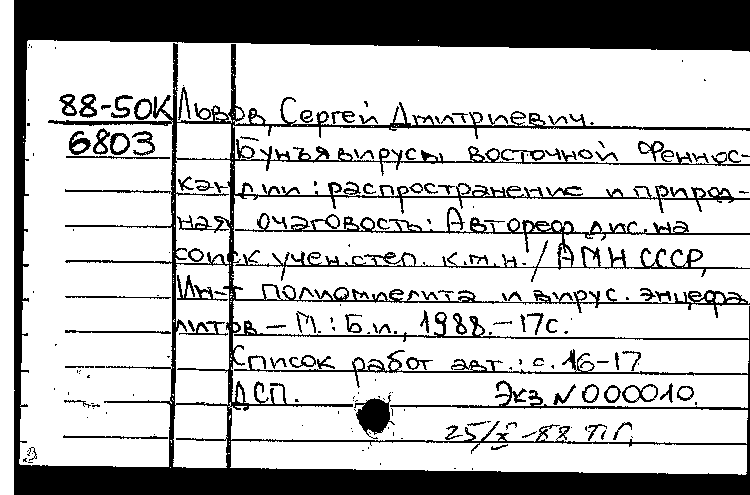 88-50К Львов, Сергей Дмитриевич.
6803 Бунъявирусы восточной Феннос-
кандии: распространение и природ-
ная очаговость: Автореф. дис. на
соиск. учен. степ. к.м.н. / АМН СССР,
Ин-т полиомиелита и вирус. энцефа
литов – М.: Б.и., 1988. – 17с.
Список работ авт.: с. 16-17
ДСП. Экз N 000010.
25/X-88 ПГ,